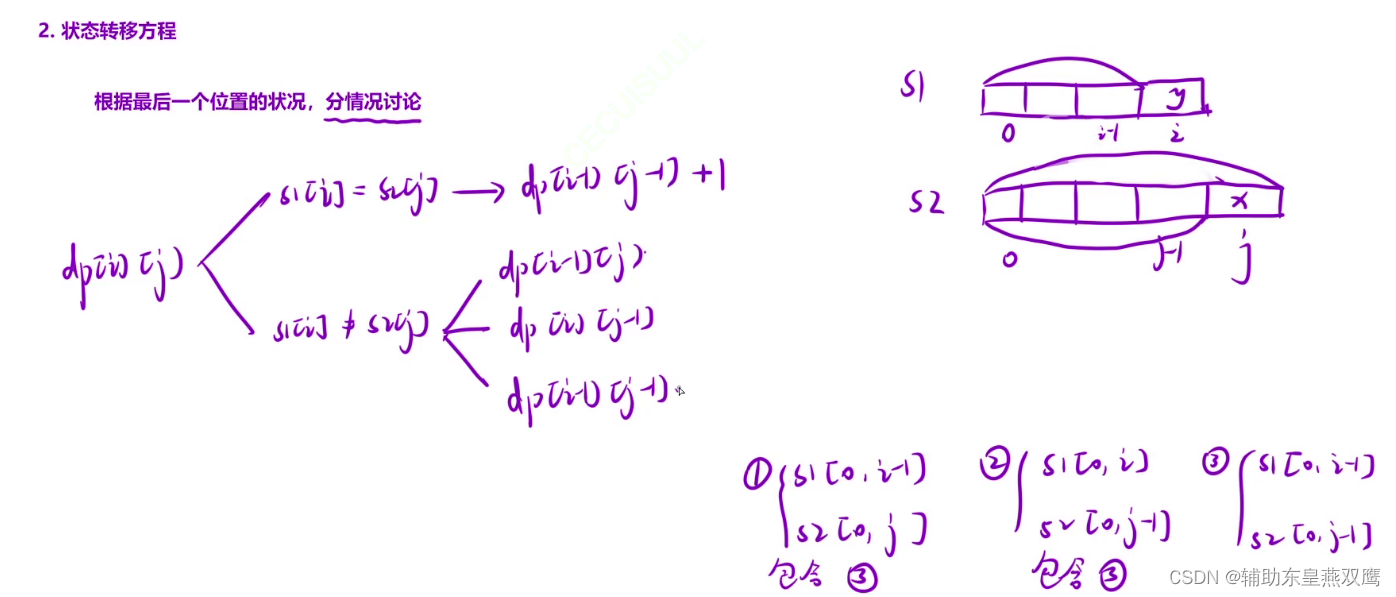 2. 状态转移方程
根据最后一个位置的状况，分情况讨论
dp[i][j]
s1[i] = s2[j] → dp[i-1][j-1] + 1
s1[i] ≠ s2[j]
dp[i-1][j]
dp[i][j-1]
dp[i-1][j-1]
S1
y
0 i-1 i
S2
x
0 j-1 j
① s1[0, i-1]
s2[0, j]
包含 ③
② s1[0, i]
s2[0, j-1]
包含 ③
③ s1[0, i-1]
s2[0, j-1]
CSDN @辅助东皇燕双鹰